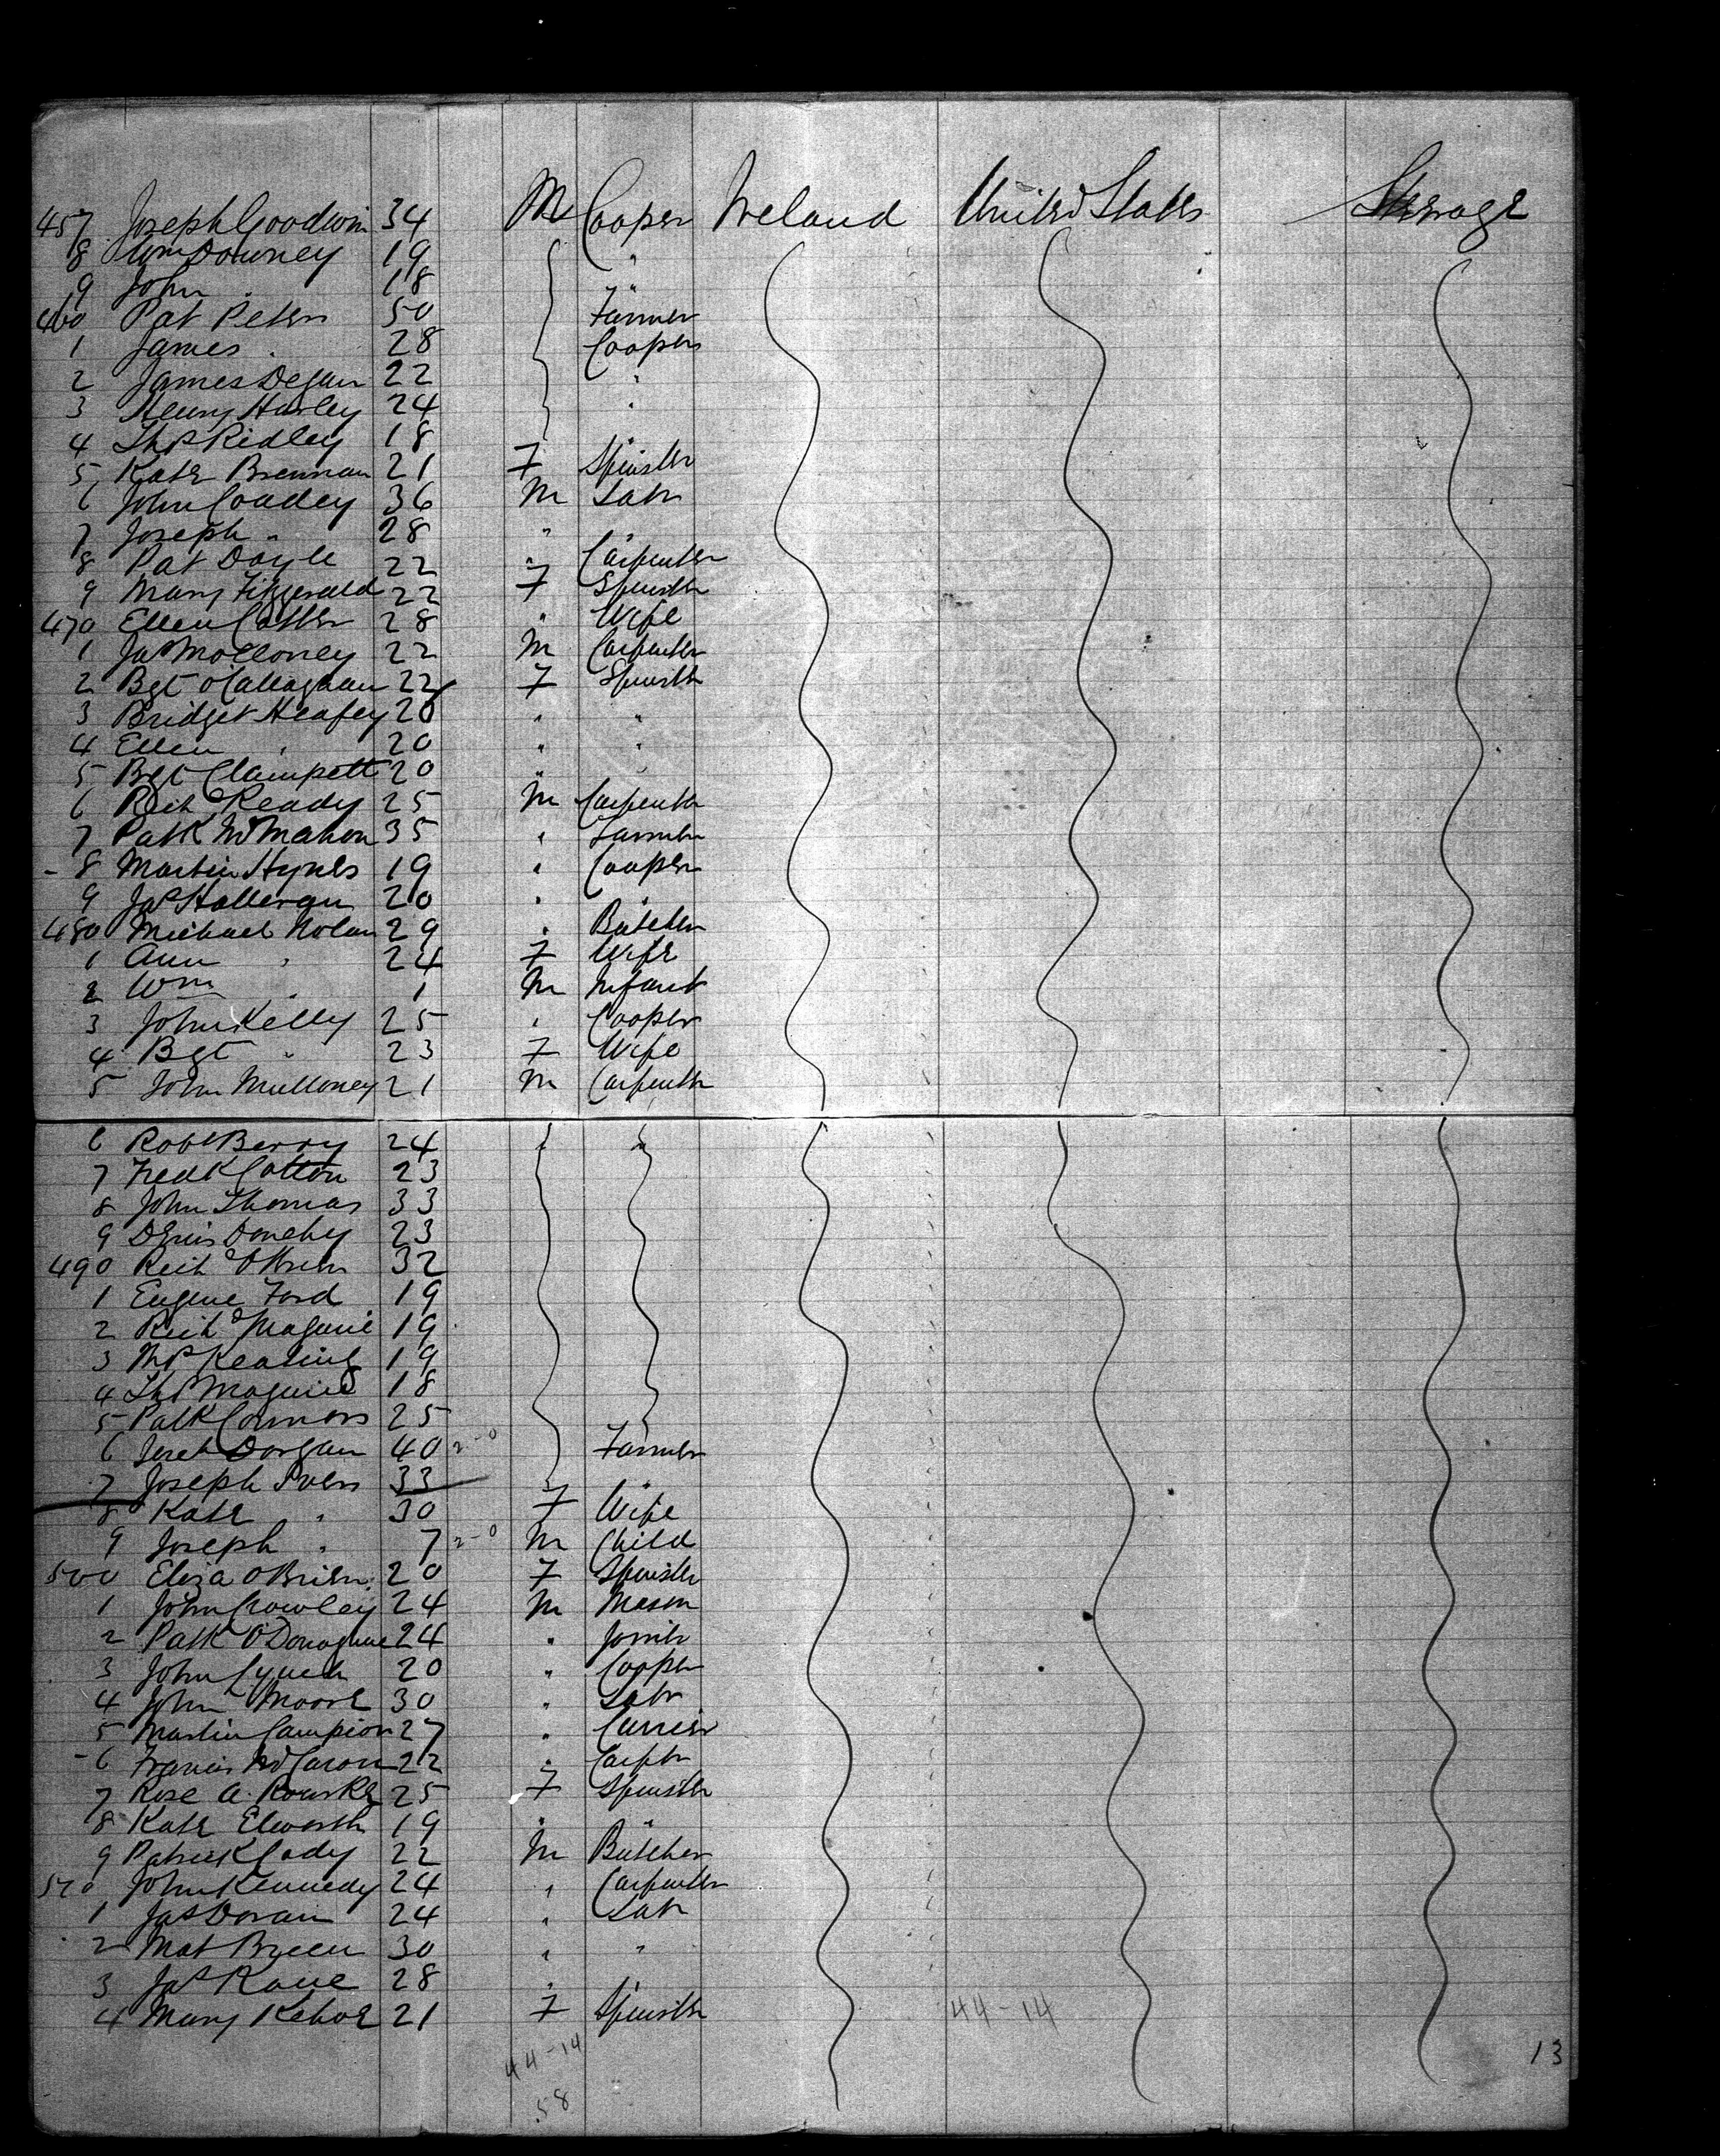 457 Joseph Goodwin 34 M Cooper Ireland United States Steerage
8 Wm Downey 19 "
9 John " 18 "
460 Pat Peters 50 Farmer
1 James " 28 Cooper
2 James Degan 22 "
3 Henry Hurley 24 "
4 Ths Ridley 18
5 Kate Brennan 21 F Spinster
6 John Coadey 36 M Labr
7 Joseph " 28 "
8 Pat Doyle 22 " Carpenter
9 Mary Fitzgerald 22 F Spinster
470 Ellen Cotter 28 " Wife
1 Jas Molloney 22 M Carpenter
2 Bgt O'Callaghan 22 F Spinster
3 Bridget Heafey 20 " "
4 Ellen " 20 " "
5 Bgt Clampett 20 "
6 Rich Ready 25 M Carpenter
7 Patk McMahon 35 " Farmer
8 Martin Hynes 19 " Cooper
9 Jas Halleran 20 " "
480 Michael Nolan 29 " Butcher
1 Ann " 24 F Wife
2 Wm " 1 M Infant
3 John Kelly 25 " Cooper
4 Bgt " 23 F Wife
5 John Mulloney 21 M Carpenter
6 Robt Berry 24 " "
7 Fredk Cotton 23
8 John Thomas 33
9 Denis Donehy 23
490 Rich OBrien 32
1 Eugene Ford 19
2 Richd Maguire 19
3 Keating 19
4 Ths Maguire 18
5 Patk Connors 25
6 Jereh Dorgan 40 2-0 Farmer
7 Joseph 33 "
8 Kate " 30 F Wife
9 Joseph " 7 2-0 M Child
500 Eliza OBrien 20 F Spinster
1 John Crowley 24 M Mason
2 Patk O'Donoghue 24 " Joiner
3 John Lynch 20 " Cooper
4 John Moore 30 " Labr
5 Martin Campion 27 " Currier
6 Francis McCaron 22 " Carptr
7 Rose A. Rourke 25 F Spinster
8 Kate Elworth 19 " "
9 Patrick Cody 22 M Butcher
510 John Kennedy 24 " Carpenter
1 Jas Doran 24 " Labr
2 Mat Breen 30 " "
3 Jas Kane 28 " "
4 Mary Kehoe 21 F Spinster 44-14
44-14
58
13